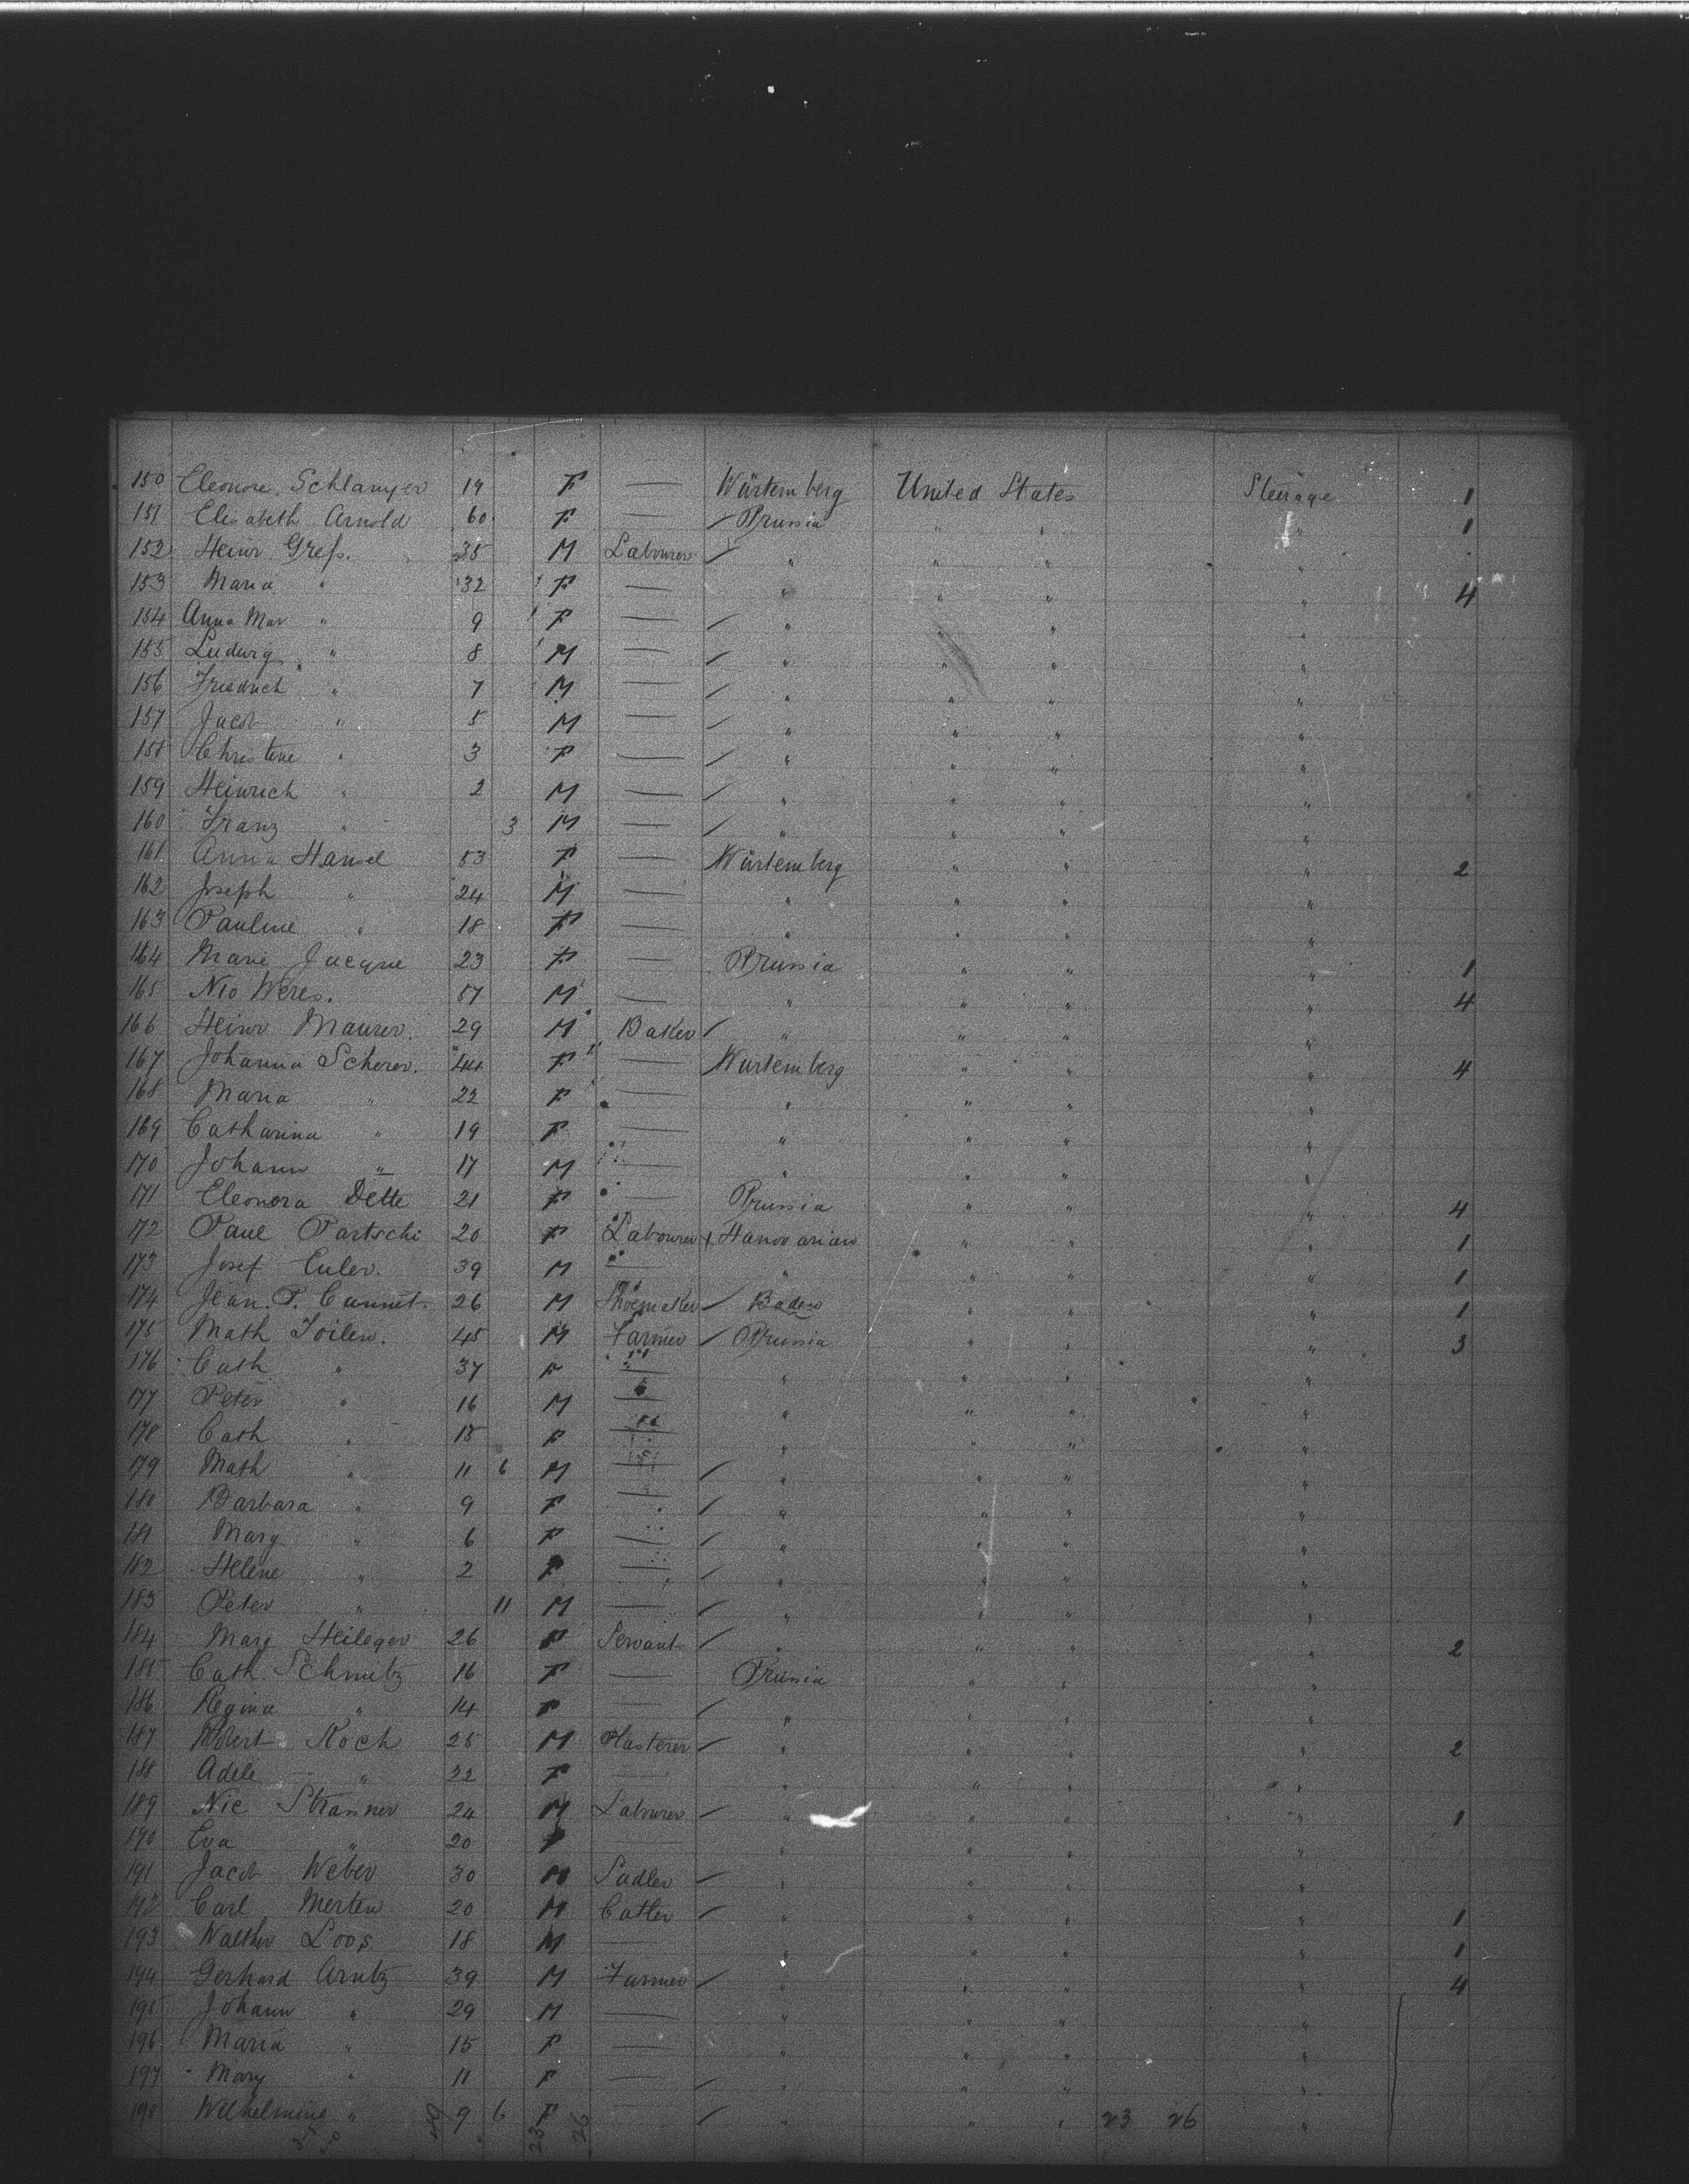 150 Eleonore Schlanyer 19 F — Würtemberg United States Steerage 1
151 Elisabeth Arnold 60 F — Prussia " " " 1
152 Heinr. Grefs. 35 M Labourer " " " "
153 Maria " 32 F — " " " " 4
154 Anna Mar " 9 F — " " " "
155 Ludwig " 8 M — " " " "
156 Friedrich " 7 M — " " " "
157 Jacob " 5 M — " " " "
158 Christine " 3 F — " " " "
159 Heinrich " 2 M — " " " "
160 Franz " 3 M — " " " "
161 Anna Hansel 53 F — Würtemberg " " " 2
162 Joseph " 24 M — " " " "
163 Pauline " 18 F — " " " "
164 Marie Jacque 23 F — Prussia " " " 1
165 Nio Weres. 57 M — " " " " 4
166 Heinr Maurer. 29 M Baker " " " "
167 Johanna Scherer. 44 F — Wurtemberg " " " 4
168 Maria " 22 F — " " " "
169 Catharina " 19 F — " " " "
170 Johann " 17 M — " " " "
171 Eleonora Dette 21 F — Prussia " " " 4
172 Paul Partschi 20 F Labourer Hanovarian " " " 1
173 Josef Euler. 39 M — " " " " 1
174 Jean. P. 26 M Shoemaker Baden " " " 1
175 Math Foilen. 45 M Farmer Prussia " " " 3
176 Cath " 37 F — " " " "
177 Peter " 16 M — " " " "
178 Cath " 15 F — " " " "
179 Math " 11 6 M — " " " "
180 Barbara " 9 F — " " " "
181 Marg " 6 F — " " " "
182 Helene " 2 F — " " " "
183 Peter " 11 M — " " " "
184 Marg Heileger 26 F Servant " " " " 2
185 Cath. Schmitz 16 F — Prussia " " "
186 Regina " 14 F — " " " "
187 Robert Koch 25 M Plasterer " " " " 2
188 Adele " 22 F — " " " "
189 Nic Strasser 24 M Labourer " " " " 1
190 Eva " 20 F — " " " "
191 Jacob Weber 30 M Sadler " " " "
192 Carl Merten 20 M Cutler " " " " 1
193 Walther Loos. 18 M — " " " " 1
194 Gerhard Arntz 39 M Farmer " " " " 4
195 Johann " 29 M — " " " "
196 Maria " 15 F — " " " "
197 Mary " 11 F — " " " "
198 Wilhelmine " 9 6 F — " " " 23 26 "
23 26